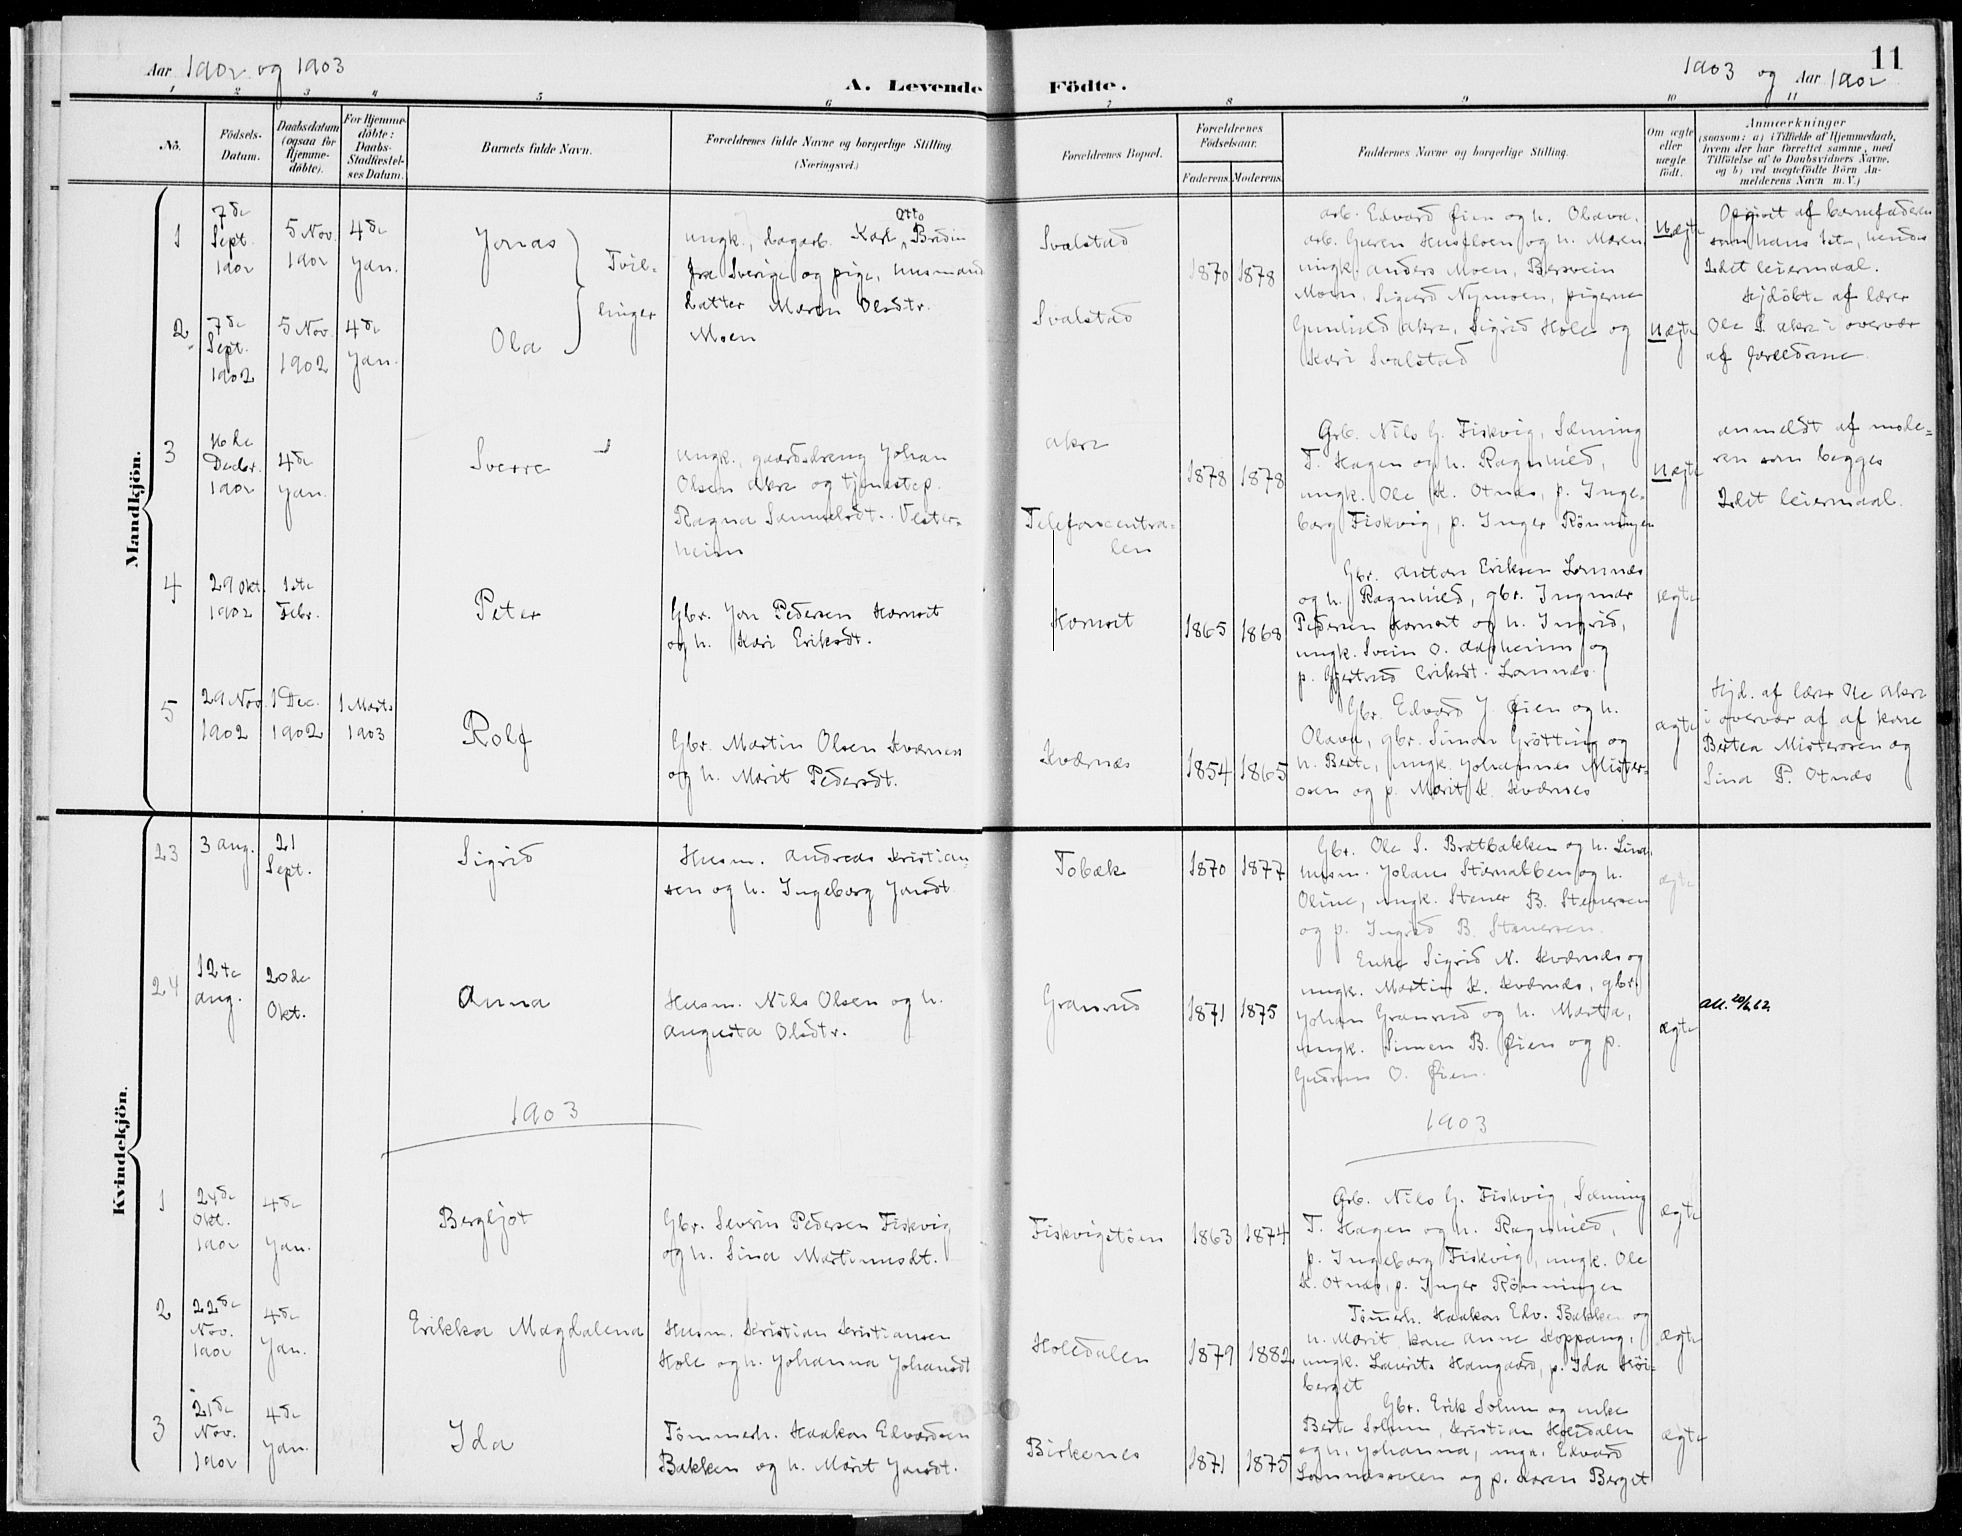 Aar 1902 og 1903
A. Levende Födte.
1903 og Aar 1902
11
1 2 3 4 5 6 7 8 9 10 11
No.
Födsels-
Datum.
Daabsdatum
(ogsaa for
Hjemme-
döbte).
For Hjemme-
döbte:
Daabs-
Stadfæstel-
ses Datum.
Barnets fulde Navn.
Forældrenes fulde Navne og borgerlige Stilling
(Næringsvei.)
Forældrenes Bopæl.
Forældrenes
Födselsaar.
Faderens. Moderens.
Faddernes Navne og borgerlige Stilling.
Om ægte
eller
uægte
födt.
Anmærkninger
(saasom: a) i Tilfælde af Hjemmedaab,
hvem der har forrettet samme, med
Tilföielse af to Daabsvidners Navne,
og b) ved uægtefödte Börn An-
melderens Navn m. V.)
Mandkjön.
1
7de
Sept.
1902
5 Nov.
1902
4de
Jan.
Jonas
Tvil-
linger
ungk., dagarb. Karl Otto Bredin
fra Sverige og pige, husmands
datter Maren Olsdtr.
Moen
Svalstad
1870 1878
arb. Edvard Øien og h. Olava,
arb. Geren Husfloen og h. Maren
ungk. Anders Moen, Bersvein
Moen, Sigurd Nymoen, pigerne
Gunhild Akre, Sigrid Hole og
Kari Svalstad
uægte
Opgivet af barnefaderen
som hans 1ste, hendes
2det leiermaal.
Hjdöbte af lærer
Ole S. Akre i overvær
af forældrene
2
7de
Sept.
1902
5 Nov.
1902
4de
Jan.
Ola
Svalstad
uægte
3
16de
Decbr.
1902
4de
Jan.
Sverre
ungk., gaardsdreng Johan
Olsen Akre og tjenestep.
Ragna Samuelsdt. Vester-
heim
Akre
Telefoncentra-
len
1878 1878
Grb. Nils G. Fiskvig, Sæming
T. Hagen og h. Ragnhild,
ungk. Ole K. Otnes, p. Inge-
borg Fiskvig, p. Inger Rönningen
uægte
anmeldt af mode-
ren som begges
2det leiermaal.
4
29 Okt.
1902
1ste
Febr.
Peter
Gbr. Jon Pedersen Hornset
og h. Kari Eriksdt.
Hornset
1865 1868
Gbr. Anton Eriksen Lomnæs
og h. Ragnhild, gbr. Ingmar
Pedersen Hornset og h. Ingrid,
ungk. Svein O. Odpheim og
p. Gjertrud Eriksdt. Lomnæs.
ægte
5
29 Nov.
1902
1 Dec.
1902
1 Marts
1903
Rolf
Gbr. Martin Olsen Kværnes
og h. Marit Pedersdt.
Kværnæs
1854 1865
Gbr. Edvard J. Øien og h.
Olava, gbr. Simon Grötting og
h. Berte, ungk. Johannes Mister-
osen og p. Marit K. Kværnes
ægte
Hjd. af lærer Ole Akre
i overvær af af kone
Bertea Misterosen og
Sina P. Otnæs
Kvindekjön.
23
3 Aug.
21
Sept.
Sigrid
Husm. Andreas Kristian-
sen og h. Ingeborg Jonsdt.
Tobæk
1870 1877
Gbr. Ole S. Bratbakken og h. Lina,
husm. Johans Stærnabben og h.
Oline, ungk. Stener B. Stenersen
og p. Ingrid B. Stenersen.
ægte
24
12te
Aug.
20de
Okt.
Anna
Husm. Nils Olsen og h.
Augusta Olsdtr.
Granrud
1871 1875
Enke Sigrid N. Kværnæs og
ungk. Martin K. Kværnæs, gbr.
Johan Granrud og h. Marta,
ungk. Simen B. Øien og p.
Gudrun O. Øien.
ægte
1903
1903
1
24de
Okt.
1902
4de
Jan.
Bergljot
Gbr. Severin Pedersen Fiskvig
og h. Sina Martinusdt.
Fiskvigstöen
1863 1874
Grb. Nils G. Fiskvig, Sæming
T. Hagen og h. Ragnhild,
p. Ingeborg Fiskvig, ungk. Ole
K. Otnæs, p. Inger Rönningen
ægte
2
22de
Nov.
1902
4de
Jan.
Erikka Magdalena
Husm. Kristian Kristiansen
Hole og h. Johanna Johansdt
Holedalen
1879 1882
Tömmerh. Haakon Edv. Bakken og
h. Marit, kone Anne Koppang,
ungk. Laurits Haugaard, p. Ida Höi-
berget
ægte
3
21de
Nov.
1902
4de
Jan.
Ida
Tömmerh. Haakon Edvardsen
Bakken og h. Marit Jonsdt.
Birkenes
1871 1875
Gbr. Erik Solum og enke
Berte Solum, Kristian Holedalen
og h. Johanna, ungk. Edvard
Lomnæsveen og p. Karen Berget
ægte